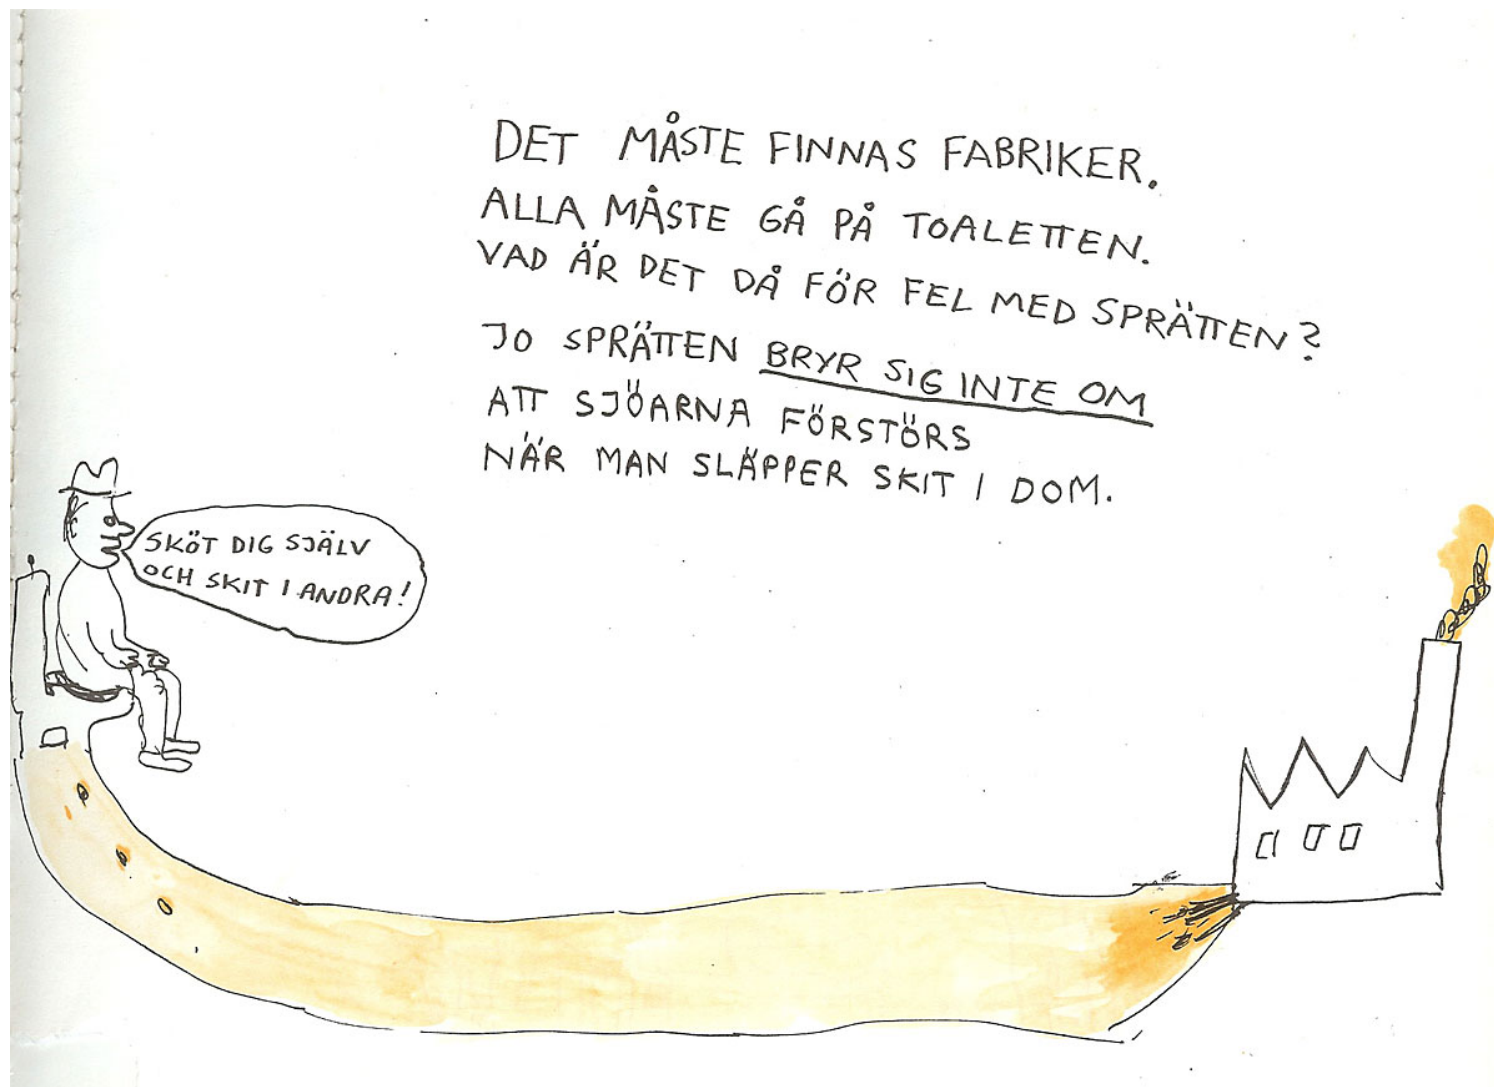 DET MÅSTE FINNAS FABRIKER.
ALLA MÅSTE GÅ PÅ TOALETTEN.
VAD ÄR DET DÅ FÖR FEL MED SPRÄTTEN?
JO SPRÄTTEN BRYR SIG INTE OM
ATT SJÖARNA FÖRSTÖRS
NÄR MAN SLÄPPER SKIT I DOM.
SKÖT DIG SJÄLV
OCH SKIT I ANDRA!